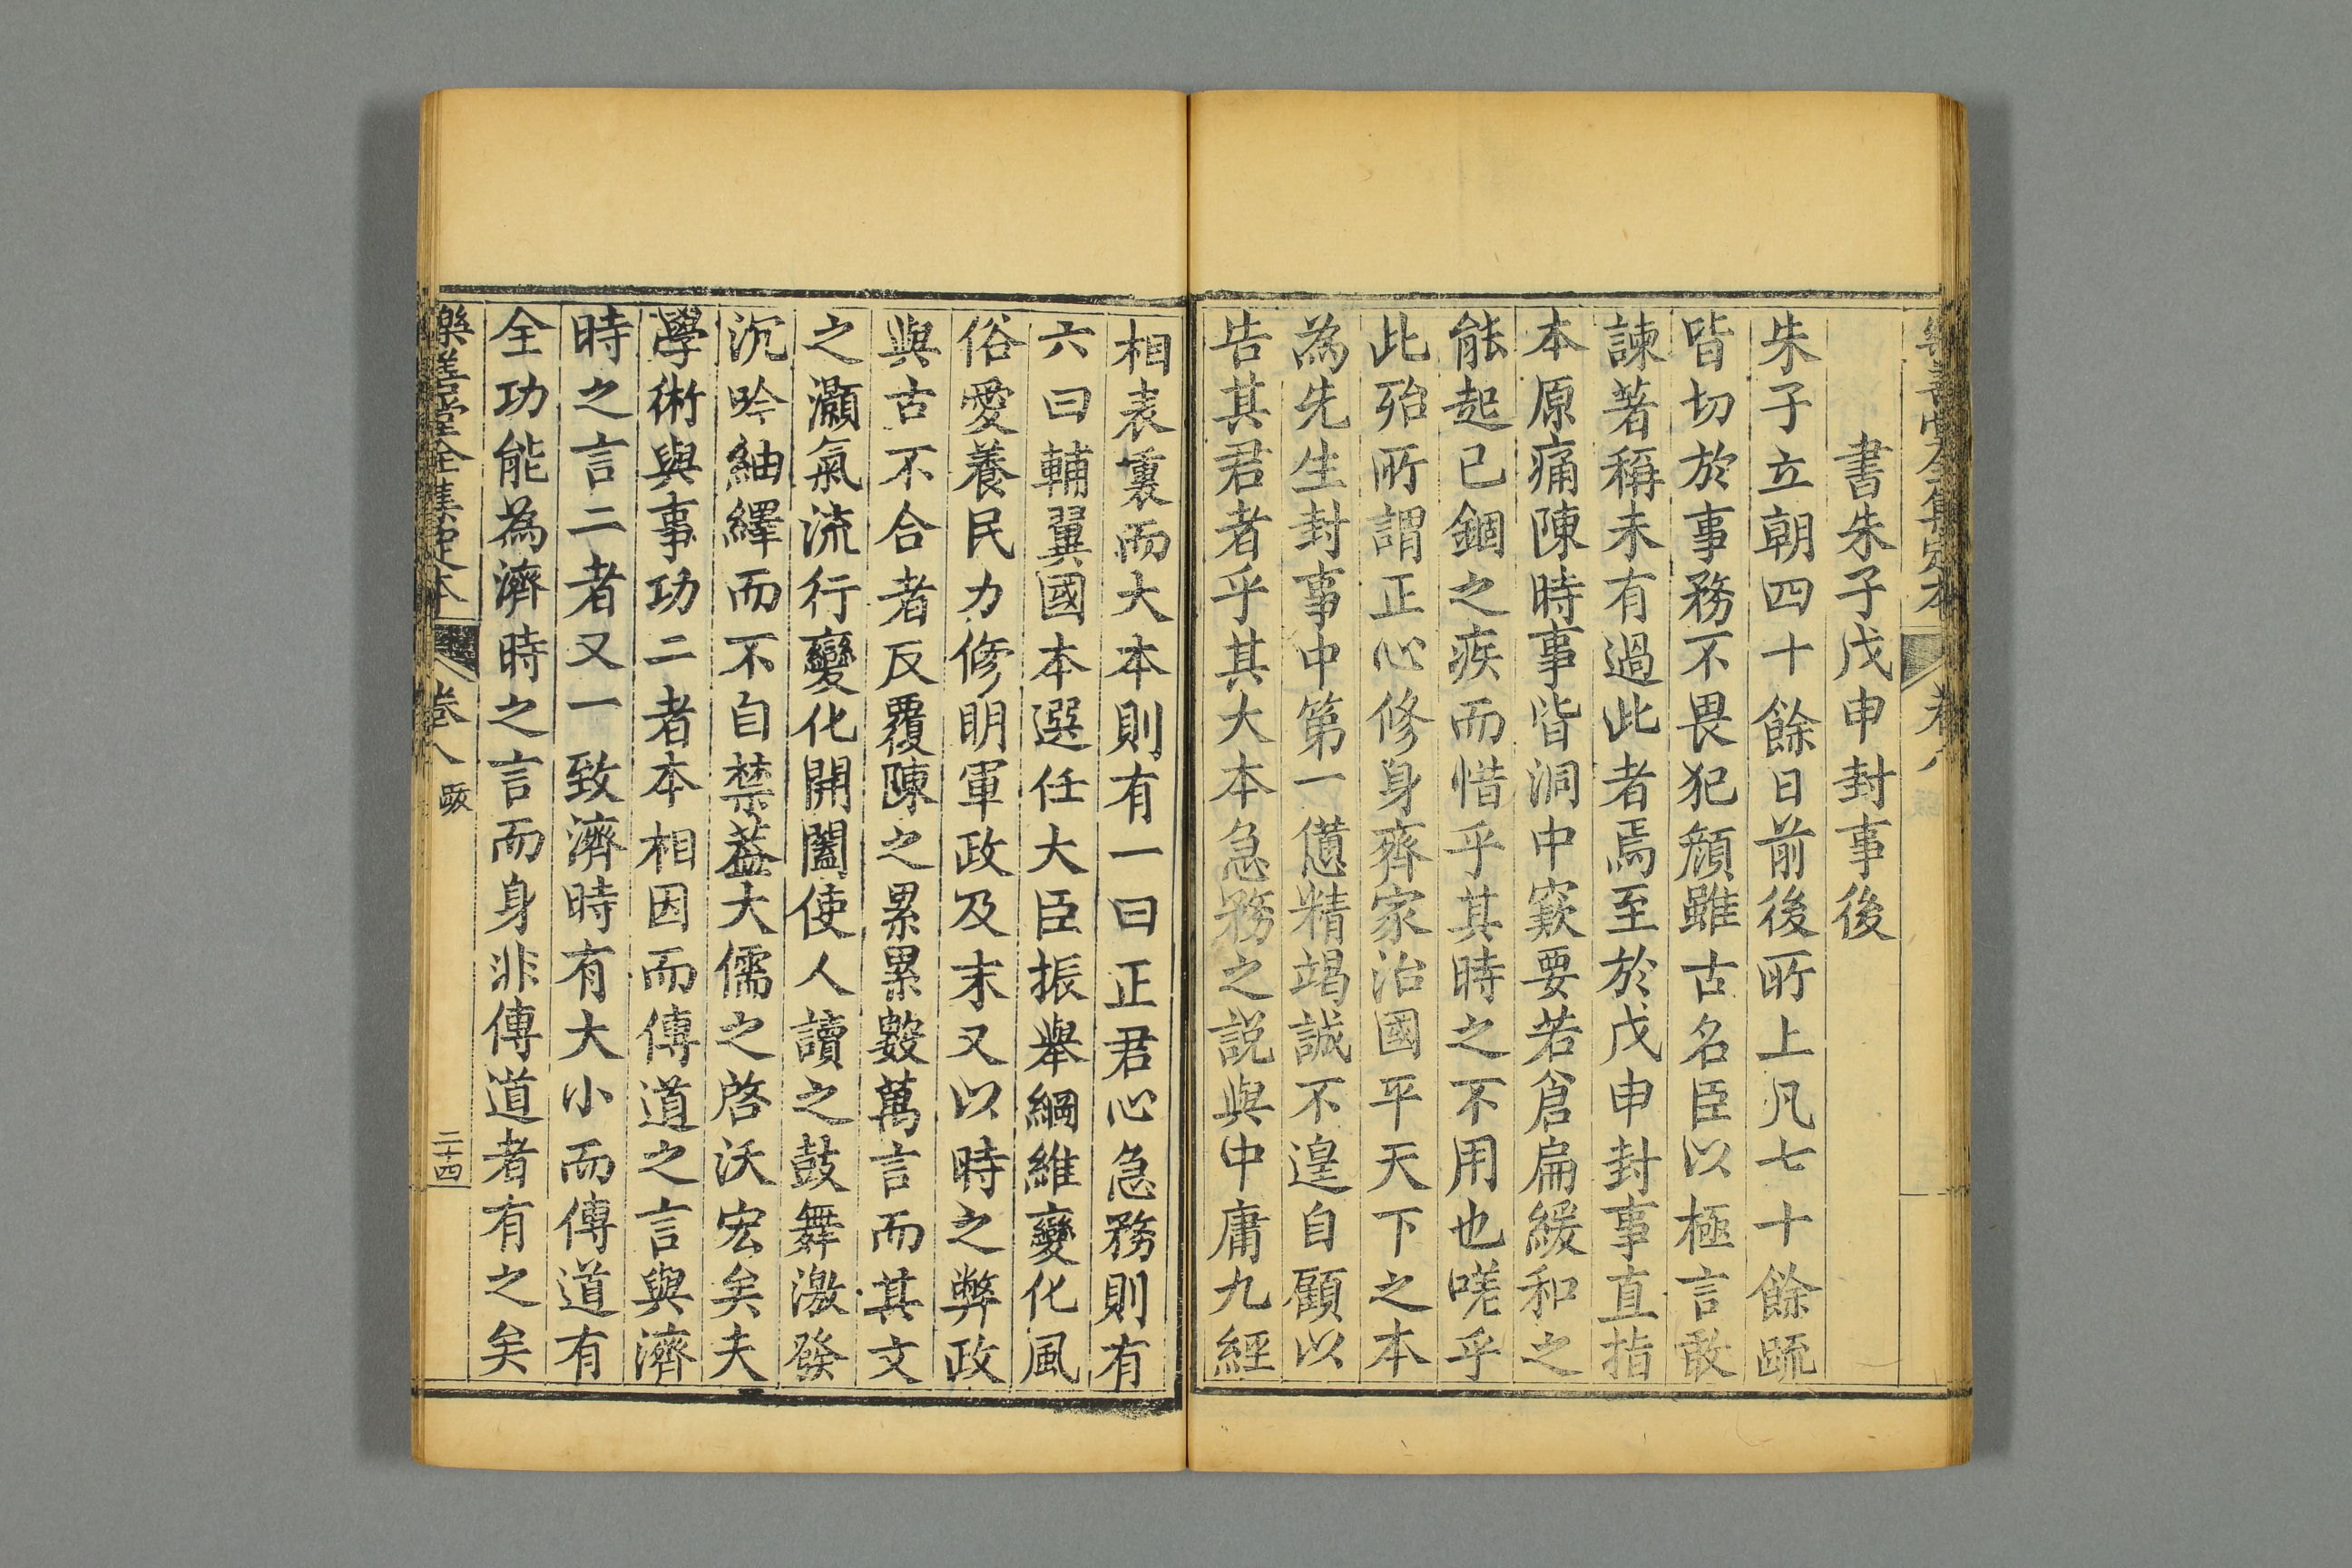 樂善堂全集定本 卷八
書朱子戊申封事後
朱子立朝四十餘日前後所上凡七十餘疏
皆切於事務不畏犯顏雖古名臣以極言敢
諫著稱未有過此者焉至於戊申封事直指
本原痛陳時事皆洞中窾要若倉扁緩和之
能起已錮之疾而惜乎其時之不用也嗟乎
此殆所謂正心修身齊家治國平天下之本
為先生封事中第一僅精竭誠不遑自顧以
告其君者乎其大本急務之説與中庸九經
相表裏而大本則有一曰正君心急務則有
六曰輔翼國本選任大臣振舉綱維變化風
俗愛養民力修明軍政及末又以時之弊政
與古不合者反覆陳之累累數萬言而其文
之灝氣流行變化開闔使人讀之鼓舞激發
沉吟紬繹而不自禁葢大儒之啓沃宏矣夫
學術與事功二者本相因而傳道之言與濟
時之言二者又一致濟時有大小而傳道有
全功能為濟時之言而身非傳道者有之矣
樂善堂全集定本 卷八 跋 二十四